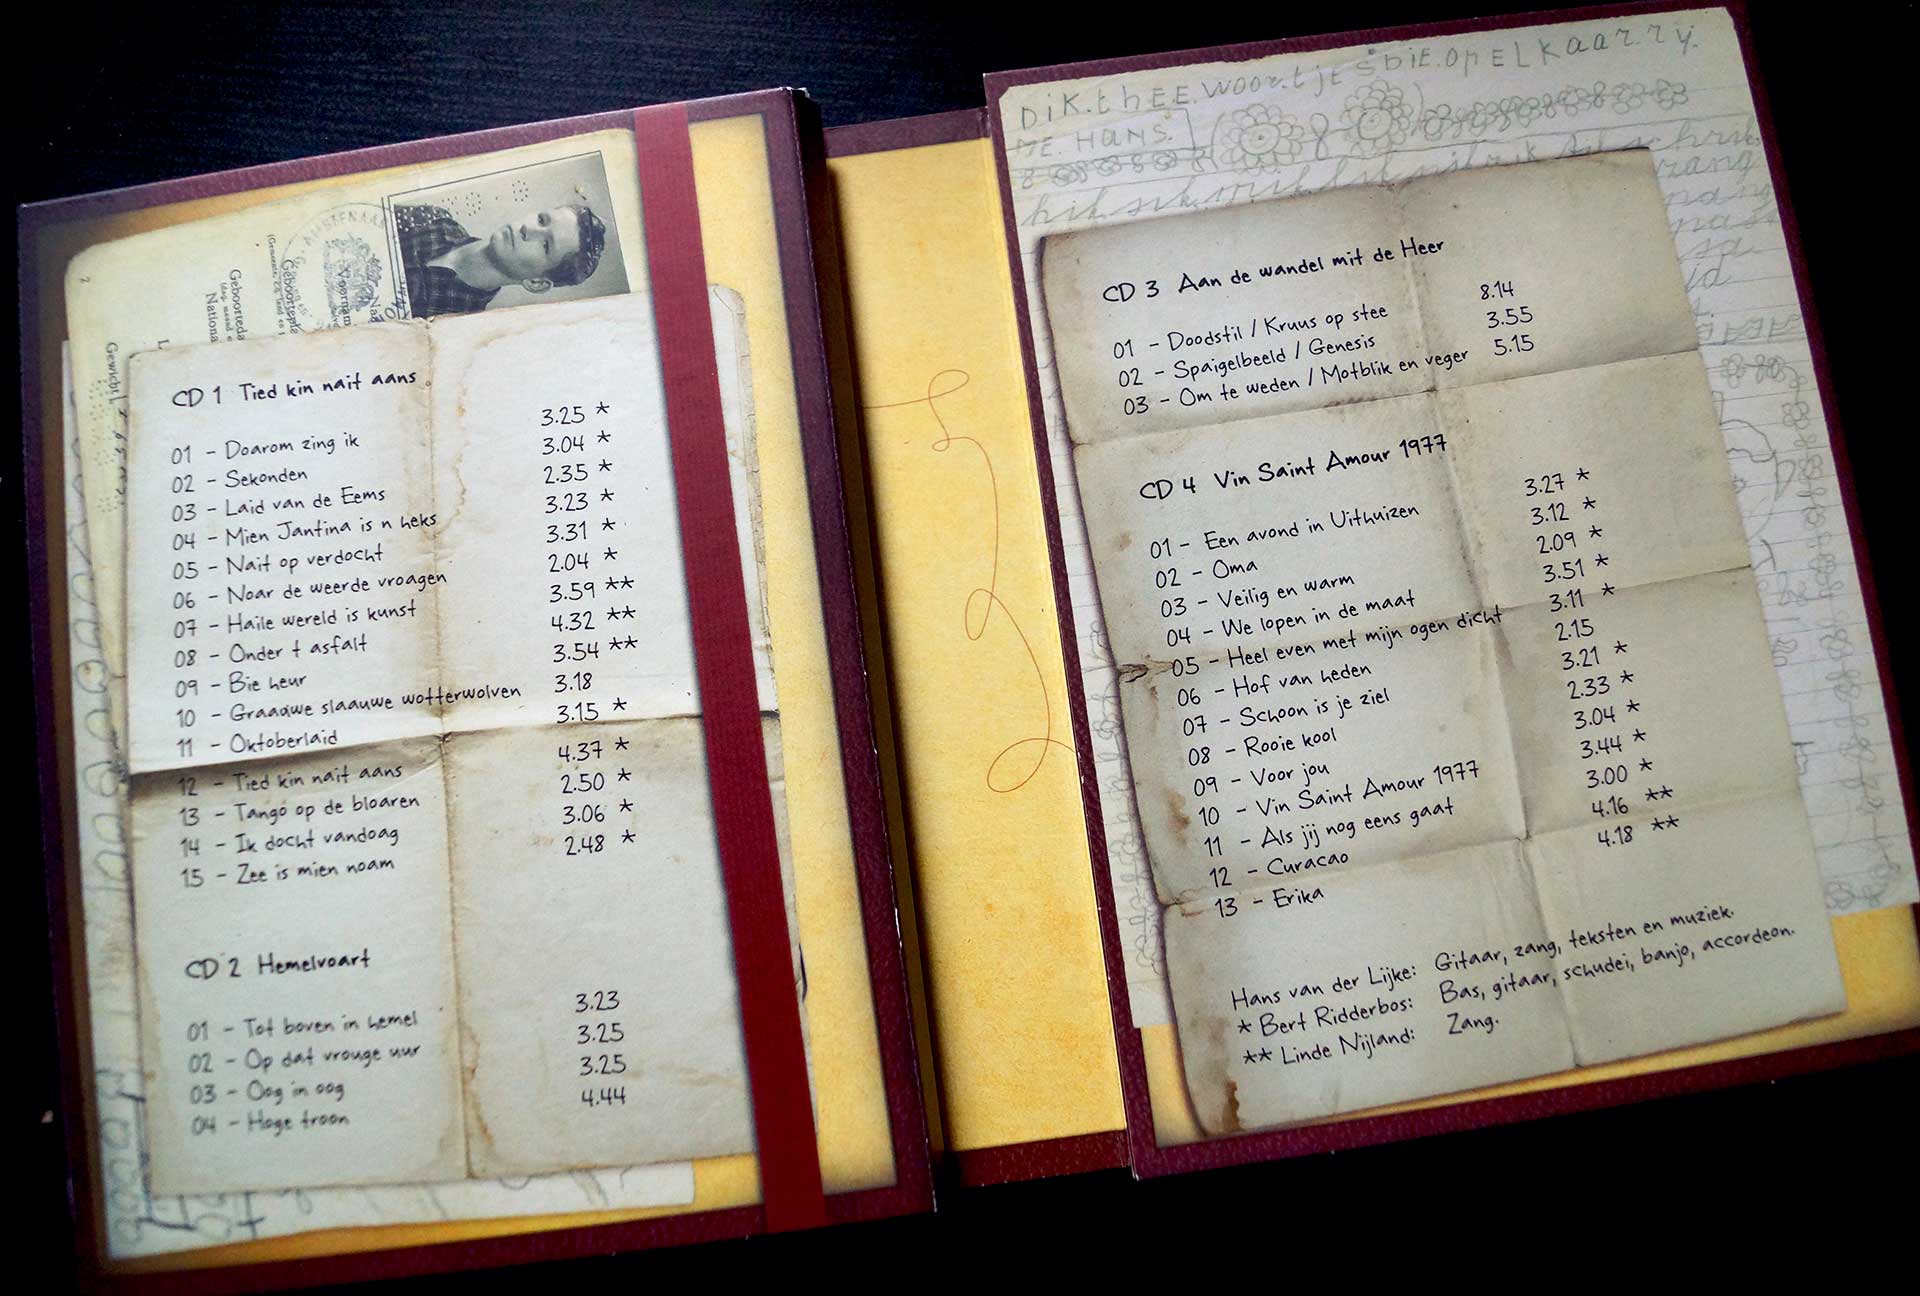 AMSTENAA
Geboortepla
Voornam
Naa
Geborteda
Nationa
Gewicht
2
CD 1 Tied kin nait aans
01 - Doarom zing ik 3.25 *
02 - Sekonden 3.04 *
03 - Laid van de Eems 2.35 *
04 - Mien Jantina is n heks 3.23 *
05 - Nait op verdocht 3.31 *
06 - Noar de weerde vroagen 2.04 *
07 - Haile wereld is kunst 3.59 **
08 - Onder t asfalt 4.32 **
09 - Bie heur 3.54 **
10 - Graauwe slaauwe wotterwolven 3.18
11 - Oktoberlaid 3.15 *
12 - Tied kin nait aans 4.37 *
13 - Tango op de bloaren 2.50 *
14 - Ik docht vandoag 3.06 *
15 - Zee is mien noam 2.48 *
CD 2 Hemelvoart
01 - Tot boven in hemel 3.23
02 - Op dat vrouge uur 3.25
03 - Oog in oog 3.25
04 - Hoge troon 4.44
DIK.thEE.woortjesDIE.opELKaar.rij.
ME. HANS.
CD 3 Aan de wandel mit de Heer
01 - Doodstil / Kruus op stee 8.14
02 - Spaigelbeeld / Genesis 3.55
03 - Om te weden / Motblik en veger 5.15
CD 4 Vin Saint Amour 1977
01 - Een avond in Uithuizen 3.27 *
02 - Oma 3.12 *
03 - Veilig en warm 2.09 *
04 - We lopen in de maat 3.51 *
05 - Heel even met mijn ogen dicht 3.11 *
06 - Hof van heden 2.15
07 - Schoon is je ziel 3.21 *
08 - Rooie kool 2.33 *
09 - Voor jou 3.04 *
10 - Vin Saint Amour 1977 3.44 *
11 - Als jij nog eens gaat 3.00 *
12 - Curacao 4.16 **
13 - Erika 4.18 **
Hans van der Lijke: Gitaar, zang, teksten en muziek.
* Bert Ridderbos: Bas, gitaar, schudei, banjo, accordeon.
** Linde Nijland: Zang.